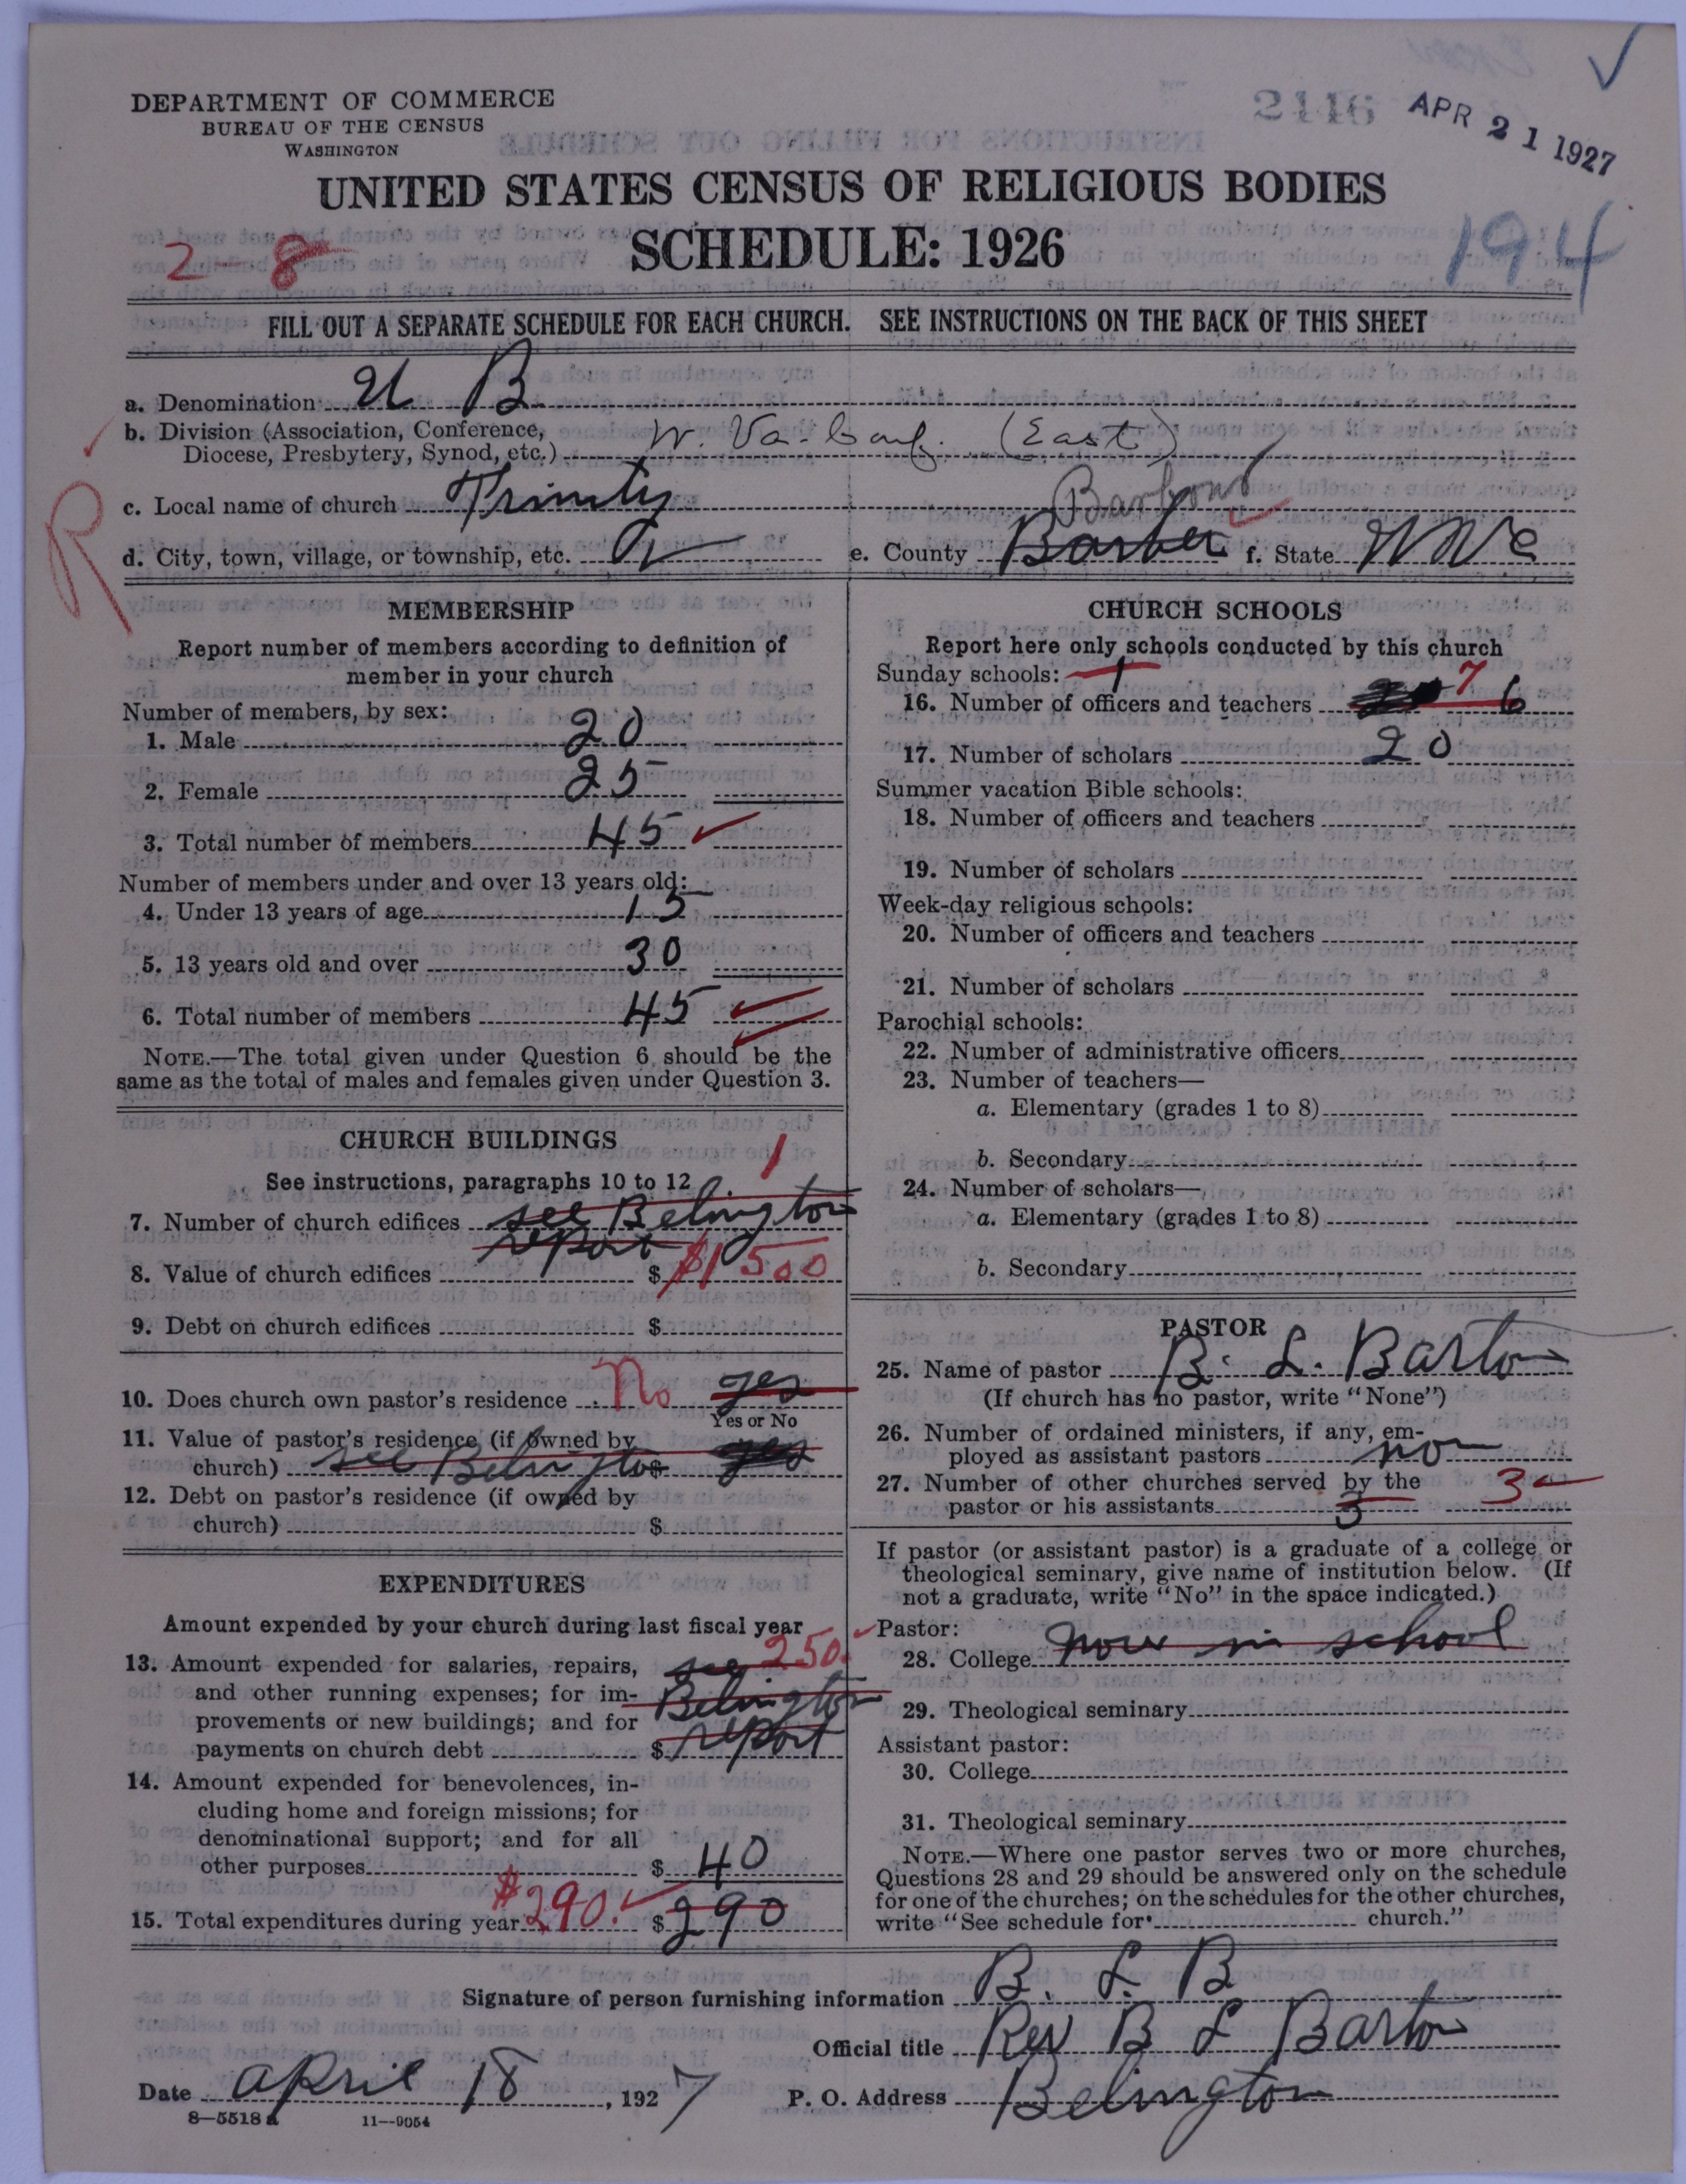 2116
APR 21 1927
DEPARTMENT OF COMMERCE
BUREAU OF THE CENSUS
WASHINGTON
UNITED STATES CENSUS OF RELIGIOUS BODIES
SCHEDULE: 1926
2-8
194
FILL OUT A SEPARATE SCHEDULE FOR EACH CHURCH. SEE INSTRUCTIONS ON THE BACK OF THIS SHEET
a. Denomination U B
b. Division (Association, Conference,
Diocese, Presbytery, Synod, etc.) W. Va. Conf. (East)
R
c. Local name of church Trinity
Barbour
d. City, town, village, or township, etc. e. County Barber f. State W Va
MEMBERSHIP
Report number of members according to definition of
member in your church
Number of members, by sex:
1. Male 20
2. Female 25
3. Total number of members 45
Number of members under and over 13 years old:
4. Under 13 years of age 15
5. 13 years old and over 30
6. Total number of members 45
NOTE.—The total given under Question 6 should be the
same as the total of males and females given under Question 3.
CHURCH BUILDINGS
See instructions, paragraphs 10 to 12
1
7. Number of church edifices see Belington
report
8. Value of church edifices $ $1500
9. Debt on church edifices $
10. Does church own pastor's residence No yes
Yes or No
11. Value of pastor's residence (if owned by
church) see Belington $ yes
12. Debt on pastor's residence (if owned by
church) $
EXPENDITURES
Amount expended by your church during last fiscal year
13. Amount expended for salaries, repairs, see 250.
and other running expenses; for im- Belington
provements or new buildings; and for report
payments on church debt $
14. Amount expended for benevolences, in-
cluding home and foreign missions; for
denominational support; and for all
other purposes $ 40
15. Total expenditures during year $290. $ 290
CHURCH SCHOOLS
Report here only schools conducted by this church
Sunday schools: 1
16. Number of officers and teachers 7 6
17. Number of scholars 20
Summer vacation Bible schools:
18. Number of officers and teachers
19. Number of scholars
Week-day religious schools:
20. Number of officers and teachers
21. Number of scholars
Parochial schools:
22. Number of administrative officers
23. Number of teachers—
a. Elementary (grades 1 to 8)
b. Secondary
24. Number of scholars—
a. Elementary (grades 1 to 8)
b. Secondary
PASTOR
25. Name of pastor B. L. Barton
(If church has no pastor, write "None")
26. Number of ordained ministers, if any, em-
ployed as assistant pastors no
27. Number of other churches served by the
pastor or his assistants 3 3
If pastor (or assistant pastor) is a graduate of a college or
theological seminary, give name of institution below. (If
not a graduate, write "No" in the space indicated.)
Pastor:
28. College now in school
29. Theological seminary
Assistant pastor:
30. College
31. Theological seminary
NOTE.—Where one pastor serves two or more churches,
Questions 28 and 29 should be answered only on the schedule
for one of the churches; on the schedules for the other churches,
write "See schedule for church."
Signature of person furnishing information B. L. B
Official title Rev B L Barton
Date April 18, 1927 P. O. Address Belington
8—5518 a 11—9054